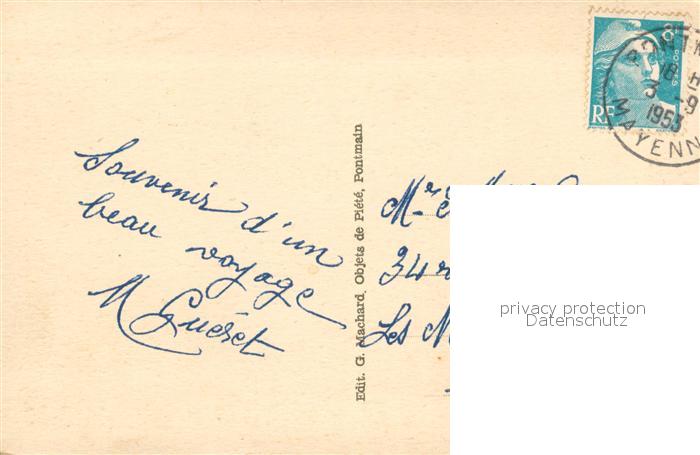 Souvenir d'un
beau voyage
M Guéret
Edit. G. Machard, Objets de Piété, Pontmain
34
Les
RF
18 H
3 -9
1953
MAYENN
privacy protection
Datenschutz